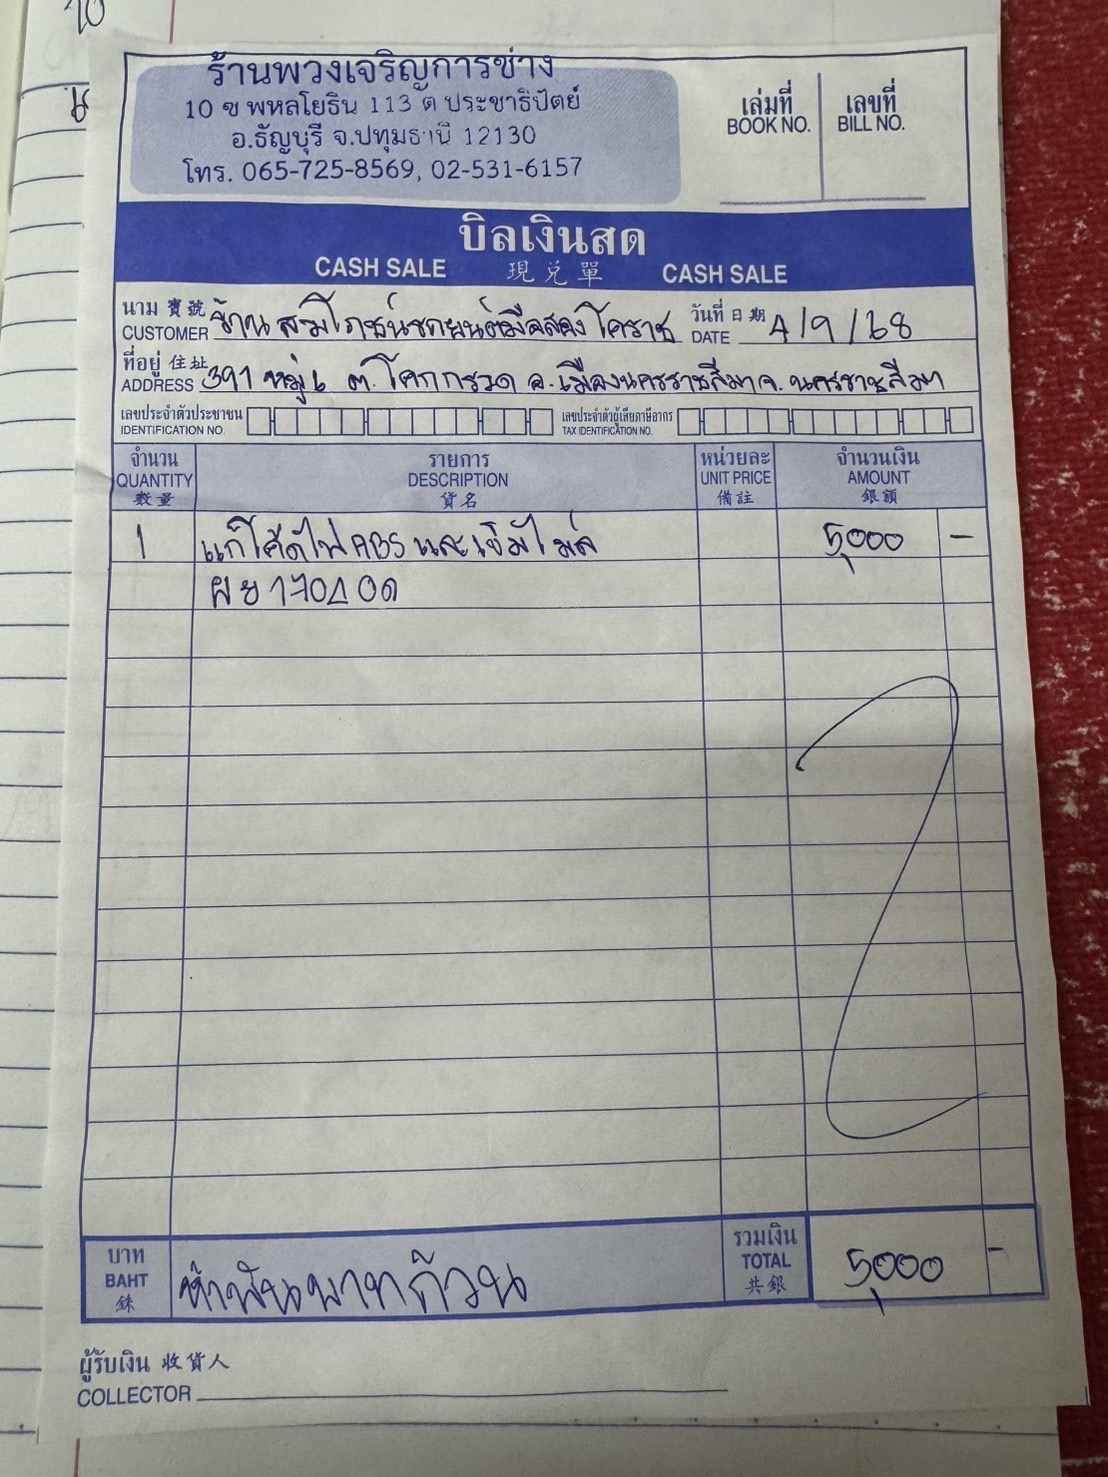 ร้านพวงเจริญการช่าง
10 ซ พหลโยธิน 113 ต ประชาธิปัตย์
อ.ธัญบุรี จ.ปทุมธานี 12130
โทร. 065-725-8569, 02-531-6157
เล่มที่ เลขที่
BOOK NO. BILL NO.
บิลเงินสด
CASH SALE 現兌單 CASH SALE
นาม 寶號 ร้าน สมโภชน์รถยนต์มือสอง โคราช วันที่ 日期 4/9/68
CUSTOMER DATE
ที่อยู่ 住址 391 หมู่ 6 ต. โคกกรวด อ.เมืองนครราชสีมา จ. นครราชสีมา
ADDRESS
เลขประจำตัวประชาชน เลขประจำตัวผู้เสียภาษีอากร
IDENTIFICATION NO. TAX IDENTIFICATION NO.
จำนวน รายการ หน่วยละ จำนวนเงิน
QUANTITY DESCRIPTION UNIT PRICE AMOUNT
數量 貨名 備註 銀額
1 แก้โค้ดไฟ ABS และเข็มไมล์ 5,000 -
ผย 170
บาท รวมเงิน
BAHT ห้าพันบาทถ้วน TOTAL 5,000 -
銖 共銀
ผู้รับเงิน 收貨人
COLLECTOR